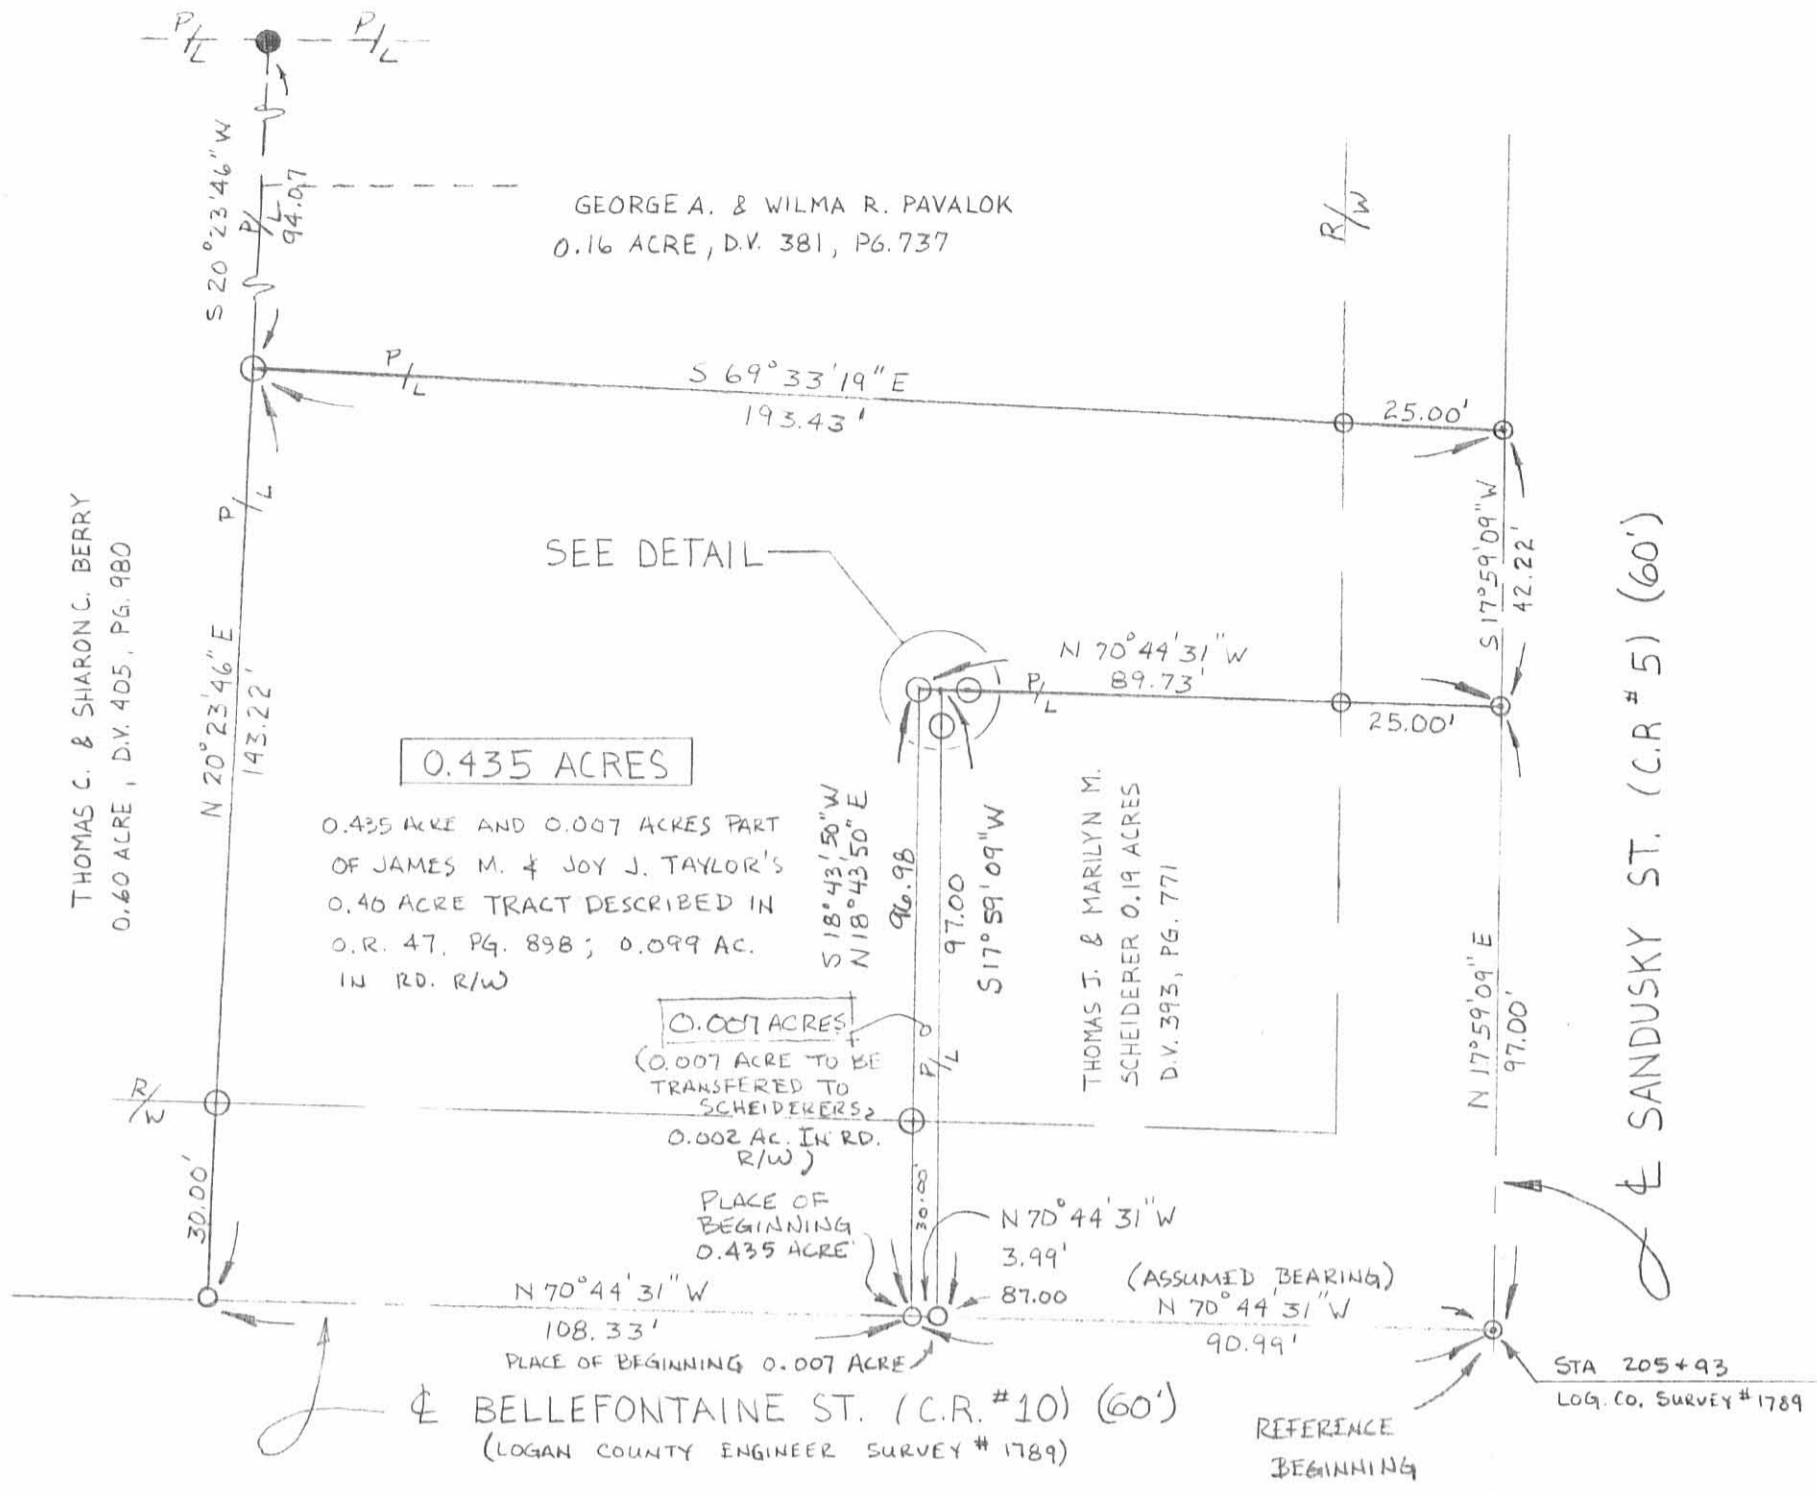 P/L
P/L
S 20°23'46" W
P/L
94.07
GEORGE A. & WILMA R. PAVALOK
0.16 ACRE, D.V. 381, PG. 737
R/W
P/L
S 69°33'19" E
193.43'
25.00'
THOMAS C. & SHARON C. BERRY
0.60 ACRE, D.V. 405, PG. 980
P/L
N 20°23'46" E
143.22'
SEE DETAIL
S 17°59'09" W
42.22'
N 70°44'31" W
89.73'
P/L
25.00'
0.435 ACRES
0.435 ACRE AND 0.007 ACRES PART
OF JAMES M. & JOY J. TAYLOR'S
0.40 ACRE TRACT DESCRIBED IN
O.R. 47, PG. 898; 0.099 AC.
IN RD. R/W
S 18°43'50" W
N 18°43'50" E
96.98
97.00
S 17°59'09" W
P/L
THOMAS J. & MARILYN M.
SCHEIDERER 0.19 ACRES
D.V. 393, PG. 771
N 17°59'09" E
97.00'
℄ SANDUSKY ST. (C.R # 5) (60')
0.007 ACRES
(0.007 ACRE TO BE
TRANSFERED TO
SCHEIDERERS,
0.002 AC. IN RD.
R/W)
R/W
30.00'
30.00'
PLACE OF
BEGINNING
0.435 ACRE
N 70°44'31" W
3.99'
87.00
(ASSUMED BEARING)
N 70°44'31" W
90.99'
N 70°44'31" W
108.33'
PLACE OF BEGINNING 0.007 ACRE
℄ BELLEFONTAINE ST. (C.R. #10) (60')
(LOGAN COUNTY ENGINEER SURVEY # 1789)
STA 205+93
LOG. CO. SURVEY # 1789
REFERENCE
BEGINNING